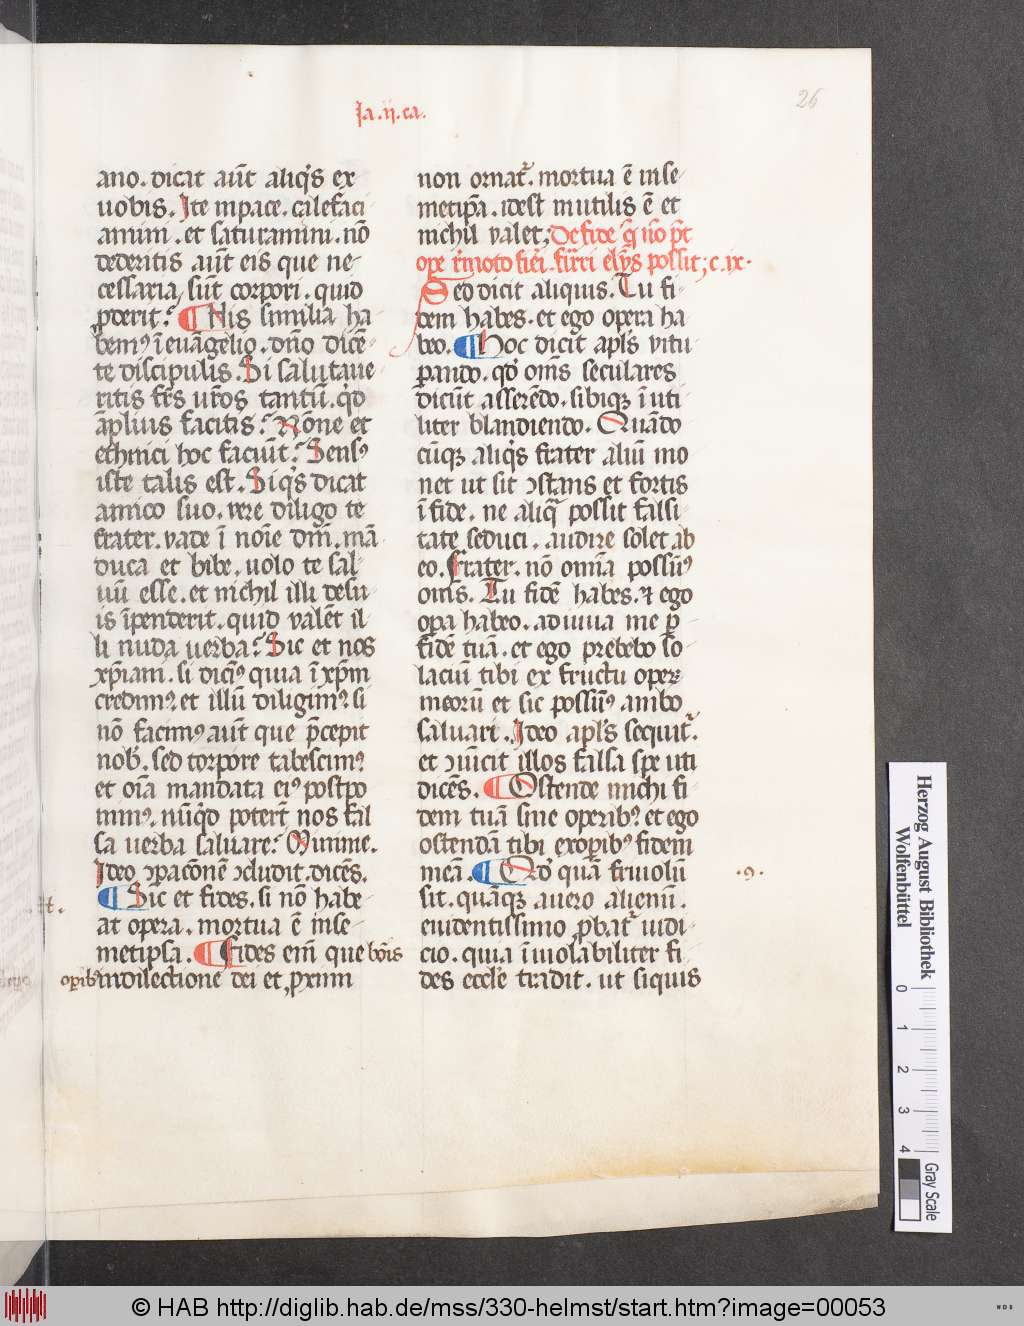 26
Ja.ij.ca.
ano. dicat aūt aliq's ex
uobis. Ite inpace. calefaci
amini. et saturamini. nō
dederitis aūt eis que ne
cessaria sūt corpori. quid
ꝓderit? ¶ Hiis similia ha
bemꝰ ī euāgelio. dn̄o dicē
te discipulis. Si salutaue
ritis fr̄s ur̄os tantū. qd̓
āplius facitis? Nōne et
ethnici hoc faciūt? Sensꝰ
iste talis est. Siq's dicat
amico suo. uere diligo te
frater. uade ī noīe dn̄i. mā
duca et bibe. uolo te sal
uū esse. et nichil illi de su
is īpenderit. quid valēt il
li nuda uerba? Sic et nos
xp̄iani. si dicimꝰ quia ī xp̄m
credimꝰ et illū diligimꝰ. si
nō facimꝰ aūt que p̄cepit
nob̓. sed torpore tabescimꝰ
et oīa mandata eiꝰ postpo
nimꝰ. nūq'd poterūt nos fal
sa uerba saluare? Minime.
Ideo ꝯparōnē ꝯcludit. dicēs.
¶ Sic et fides. si nō habe
at opera. mortua ē inse
metipsa. ¶ Fides eīm que bōis
op̄ibꝰ in dilectione dei et ꝓximi
non ornat͛. mortua ē inse
metip̄a. idest inutilis ē et
nichil valet; De fide q̄ nō p̄t
ope r̄moto fieri. firri el'ys possit; c. ix.
Sed dicit aliquis. Tu fi
dem habes. et ego opera ha
beo. ¶ Hoc dicit apl's vitu
perando. qd̓ om̄s seculares
dicūt asserēdo. sibiqꝫ īuti
liter blandiendo. Quādo
cūqꝫ aliq's frater aliū mo
net ut sit ꝯstans et fortis
ī fide. ne aliq̄ possit falsi
tate seduci. audire solet ab
eo. Frater. nō omīa possumꝰ
om̄s. Tu fidē habes. ⁊ ego
opa habeo. adiuua me ꝑ
fidē tuā. et ego prebebo so
laciū tibi ex fructu operꝝ
meorū et sic possumꝰ ambo
saluari. Ideo apl's sequit͛.
et ꝯuīcit illos falsa spe uti
dicēs. ¶ Ostende michi fi
dem tuā sine operibꝰ. et ego
ostendā tibi ex op̄ibꝰ fidem
meā. ¶ Qd̓ quā friuolū
sit. quāqꝫ a uero alienū.
euidentissimo ꝓbat͛ iudi
cio. quia īuiolabiliter fi
des eccl'e tradit. ut siquis
.9.
Herzog August Bibliothek
Wolfenbüttel
0 1 2 3 4
Gray Scale
© HAB http://diglib.hab.de/mss/330-helmst/start.htm?image=00053
WDB